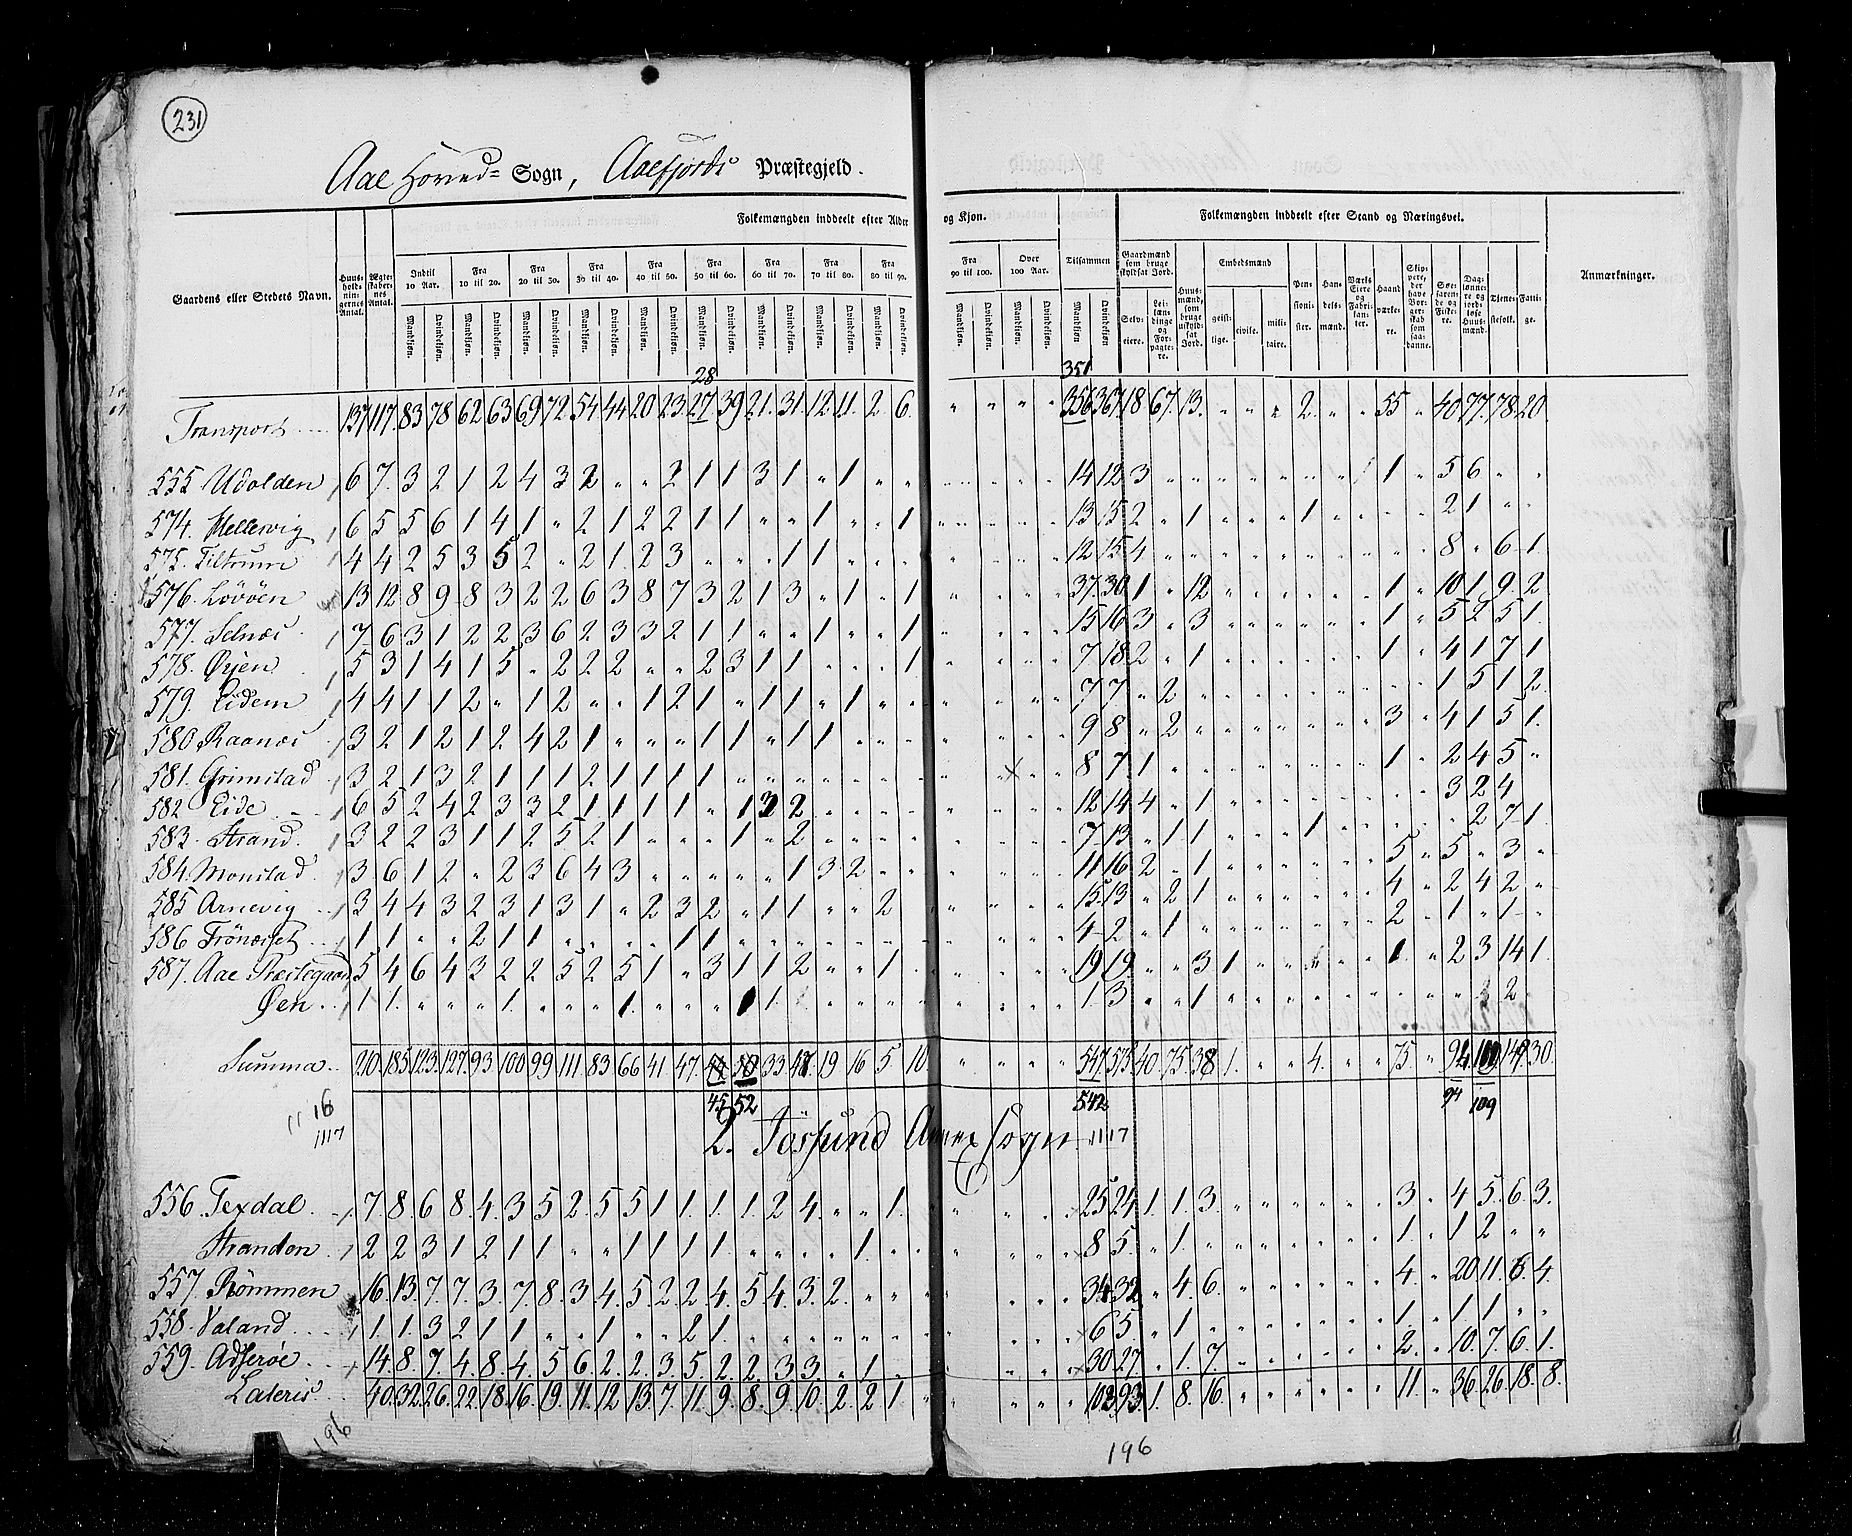 231
Aae Hoved= Sogn, Aaefjords Præstegjeld.
Gaardens eller Stedets Navn.
Huusholdningernes Antal.
Ægteskabernes Antal.
Folkemængden inddeelt efter Alder og Kjøn.
Indtil 10 Aar.
Fra 10 til 20.
Fra 20 til 30.
Fra 30 til 40.
Fra 40 til 50.
Fra 50 til 60.
Fra 60 til 70.
Fra 70 til 80.
Fra 80 til 90.
Fra 90 til 100.
Over 100 Aar.
Tilsammen
Mandkjøn. Qvindekjøn.
Folkemængden inddeelt efter Stand og Næringsvei.
Gaardmænd som bruge skyldsat Jord.
Selveiere.
Leilændinge og Forpagtere.
Huusmænd, som bruge uskyldsat Jord.
Embedsmænd
geistlige. civile. militaire.
Pensionister.
Handelsmænd.
Værks Eiere og Fabrikanter.
Haandværkere.
Skippere, der have Borgerskab som saadanne.
Søefarende og Fiskere.
Daglønnere og jordløse Huusmænd.
Tjenestefolk.
Fattige.
Anmærkninger.
28 351
Transport 137 117. 83 78 62 63 69 72. 54 44 20 23. 27 39 21. 31. 12 11. 2. 6. " " " " 356 367 18 67. 13. " " " 2. " " 55 " 40 77. 78. 20.
555 Udolden 6 7. 3 2 1 2 4 3 2 " " 2 1 1 3 1 " 1 " " " " " " 14 12 3 " " " " " " " " 1 " 5 6 " "
574. Mellervig 6 5 5 6 1 4 1 " 2 1 2 2 1 1 " " 1 " " 1 " " " " 13 15 2 " 1 " " " 1 " " " " 2 1 " "
575. Filtrum 4 4 2 5 3 5 2 " 2 1. 2 3 " " " 1 1 " " " " " " " 12 15 4 " " " " " " " " " " 8 " 6 1.
576. Lövöen 13 12 8 9 8 3 2 2 6 3 8 7 3 2 1 3 " 1 " 1 " " " " 37. 30 1 " 12 " " " " " " 1 " 10 1 9. 2
577. Selnæs 7 6 3 1 2 2 3 6 2 3 3 2 1 1. " " 1 " " 1 " " " " 15 16 3 " 3 " " " " " " 1 " 5 2 5 1.
578. Øyen 5 3 1 4 1 5 " 2 2 2 " " 2 3 1 1 " " " 1 " " " " 7 18 2 " 1 " " " " " " 1 " 4 1 7 1
579. Eidem 4 4 1 1 2 " 1 2 " " 1 2 1 " 1 1 " 1 " " " " " " 7 7 " 2 " " " " " " " " " 1 5 1 2
580 Raanæs 3 2 1 2 1 2 4 2 1 " " " 1 1 " 1 1 " " " " " " " 9 8 " 2 " " " " " " " 3 " 4 1 5 1.
581. Grimstad 3 2 1 3 2 1 1 1 2 1 1 1 1 " " " " " " " " " " " 8 7 1 " " " " " " " " 1 " 2 4 5 "
582 Eide 6 5 2 4 2 3 3 2 1 1 1 1 " 1 3 2 " " " " " " " " 12 14 4 " 1 " " " " " " " " 3 2 4
583. Strand. 3 2 2 3 1 1 2 5 2 1 " " " 1 " 2 " " " " " " " " 7. 13 " 1 1 " " " 1 " " " " " 2 7 1
584. Monstad. 3 6 1 2 " 2 3 6 4 3 " " " " " 1 3 2 " " " " " " 11 16 2 " 1 " " " " " " 5 " 5 " 3 "
585 Arnevig 3 4 4 3 2 3 1 3 1 " 2 3 2 " 1 1 " " 2 " " " " " 15. 13 " 2 1 " " " " " " 4 " 2 4 2 "
586 Frönæsset 1 1 " " 2 1 1 " " " " 1 1 " " " " " " " " " " " 4 2 " 1 " " " " " " " 2 " 1 " 1 "
587. Aae Præstegaard 5 4 6 4 3 2 2 5 2 5 1 " 3 1 1 2 " " 1 " " " " " 19 19 " " 3 1 " " " " " 1 " 2 3 14 1.
Øen 1 1. " " " 1. " " " 1. " " " 1 1. " " " " " " " " " 1 3 " " 1 " " " " " " " " " 2
Summa 210. 185. 123. 127. 93 100 99 111. 83 66 41 47. 50 33 19 16 5 10. " " " " 547. 573. 40 75. 38 1. " " 4. " " 75 " 94 149 30.
45 52 542 94 109
11 16
1117
2. Jössund Annex Sogn 1117
556. Texdal 7. 8. 6 8. 4. 3 5 2. 5. 5 1 1. 1. 1. 2 4. " " 1. " " " " 25 24 1. 1. 3. " " " " " " 3 " 4 5. 6. 3.
Stranden 2 2 3 1 2 1 1 " " 1 1 1 1 " " " " 1 " " " " " " 8 5. " 1. " " " " " " " 1. " 1 2 " "
557. Römmen 16. 13. 7. 7. 3. 7. 8. 3. 4. 5. 2 2. 4. 5 4. 3. 2. " " " " " " " 34 32 " 4. 6. " " " " " " 4. " 20 11. 6. 4.
558. Valand 1. 1. 3 2 1 1 " " 1 " " 2 1. " " " " " " " " " " " 6 5. " 1 " " " " " " " 1. " 1 1 " "
559. Adserøe 14. 8. 7. 4. 8. 4. 5 6. 2. 2. 3. 5. 2. 2. 3 3. " 1. " " " " " " 30. 27. " 1. 7. " " " " " " 2. " 10. 7. 6. 1.
Lateris 40. 32. 26. 22. 18. 16. 19. 11. 12 13. 7. 11. 9. 8. 9. 10. 2. 2 1 " " " " " 103 93. 1. 8. 16. " " " " " " 11. " 36. 26. 18. 8.
196
196